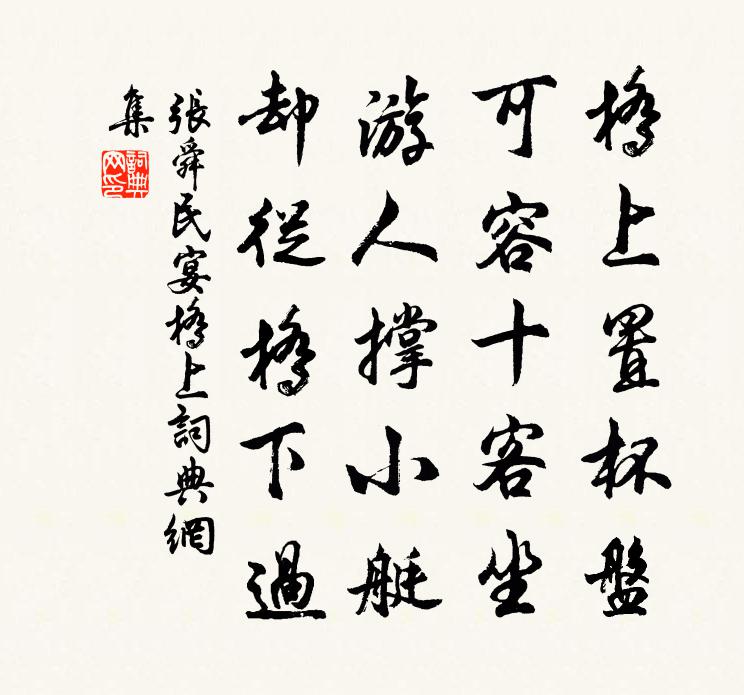 橋上置杯盤
可容十客坐
游人撐小艇
却從橋下過
張舜民宴橋上詞典網
集
詞典网印